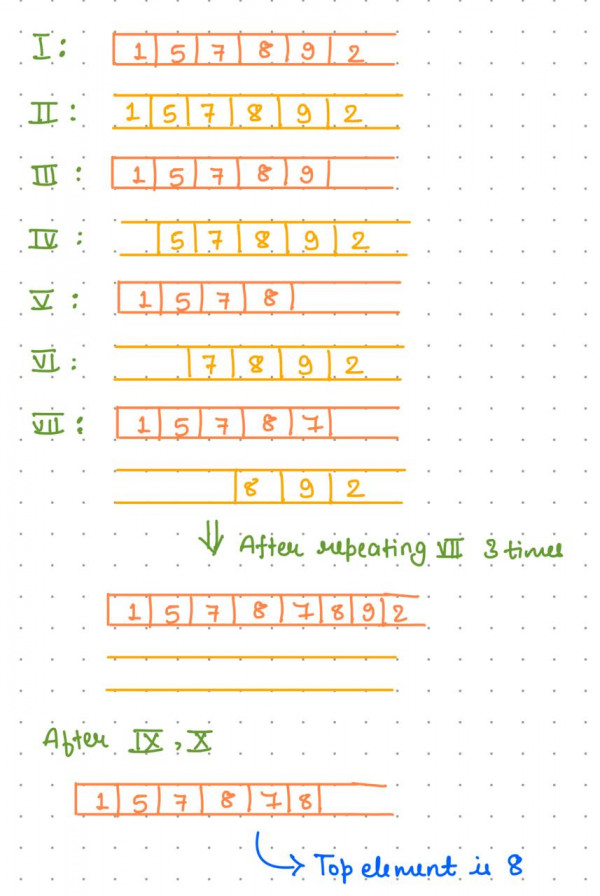 I : 1 5 7 8 9 2
II : 1 5 7 8 9 2
III : 1 5 7 8 9
IV : 5 7 8 9 2
V : 1 5 7 8
VI : 7 8 9 2
VII : 1 5 7 8 7
8 9 2
⇓ After repeating VII 3 times
1 5 7 8 7 8 9 2
After IX, X
1 5 7 8 7 8
→ Top element is 8